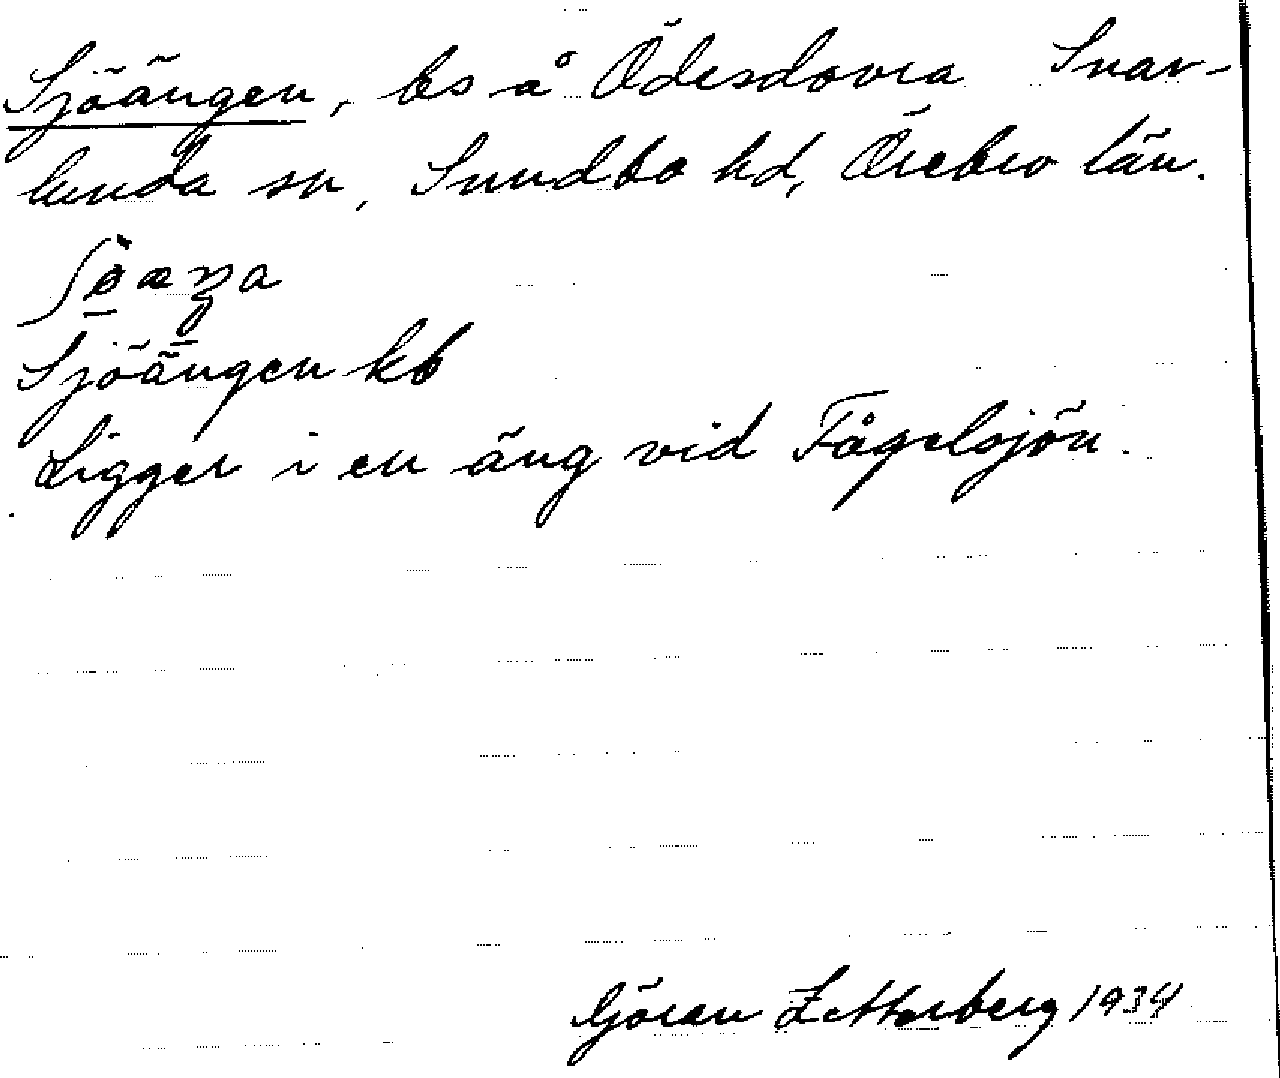 Sjöängen, bs å Ödesdovra Snav-
lunda sn, Sundbo hd, Örebro län.
Sjöängen kb
Ligger i en äng vid Fågelsjön.
Göran Zetterberg 1934